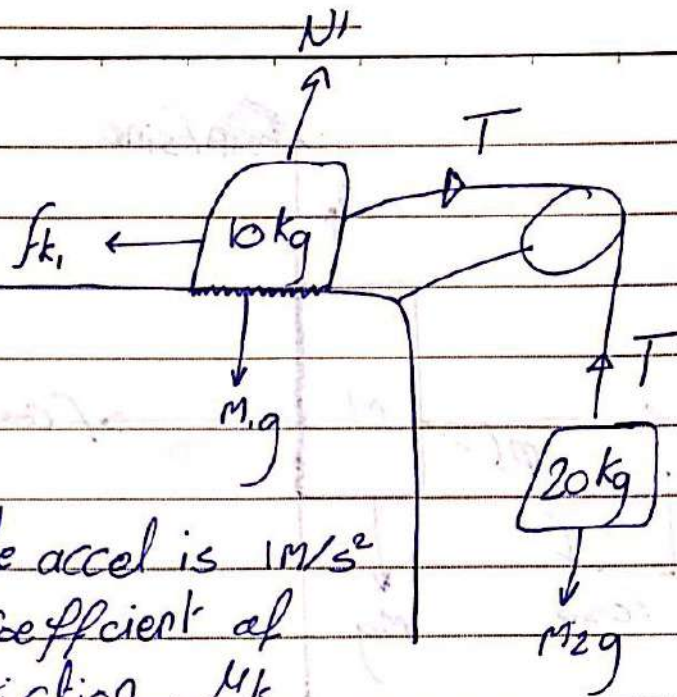 N1
T
fk1
10 kg
T
M1g
20 kg
e accel is 1M/s²
coefficient of
iction μk
M2g